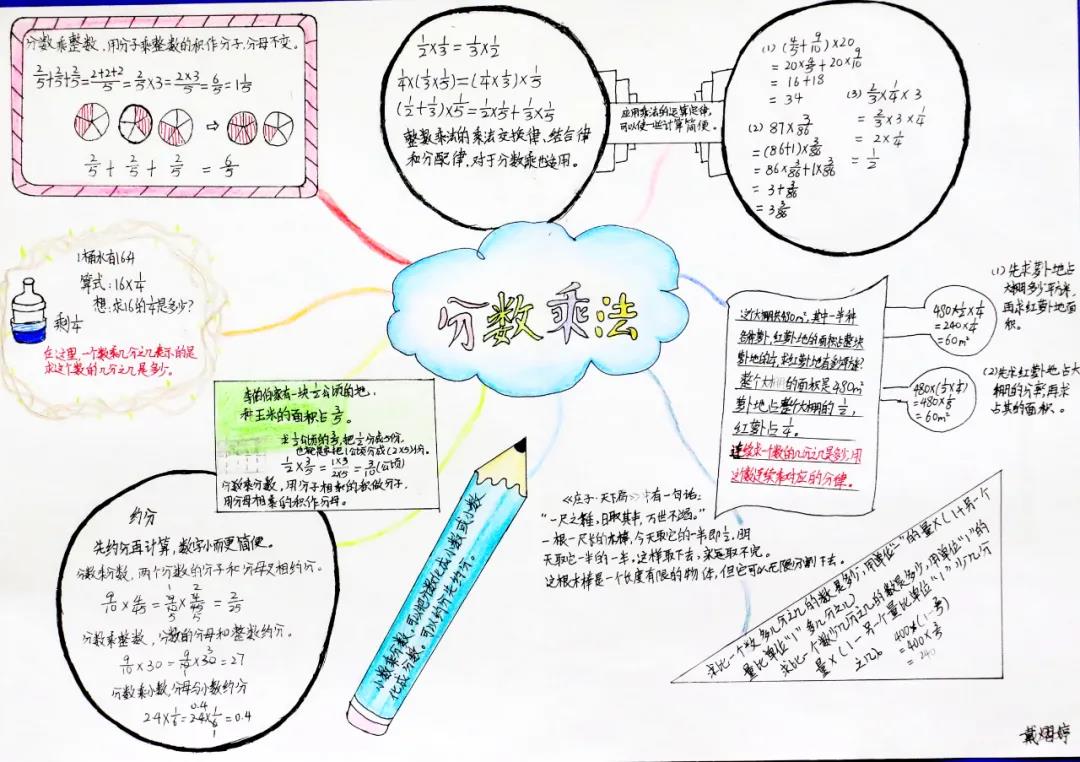 分数乘整数，用分子乘整数的积作分子，分母不变。
2/5+2/5+2/5=2+2+2/5=2/5×3=2×3/5=6/5=1 1/5
2/5 + 2/5 + 2/5 = 6/5
1/2×1/3=1/3×1/2
1/4×(1/3×1/5)=(1/4×1/3)×1/5
(1/2+1/3)×1/5=1/2×1/5+1/3×1/5
整数乘法的乘法交换律、结合律
和分配律，对于分数乘也适用。
应用乘法的运算定律，
可以使一些计算简便。
(1) (4/5+9/10)×20
=20×4/5+20×9/10
=16+18
=34
(2) 87×3/86
=(86+1)×3/86
=86×3/86+1×3/86
=3+3/86
=3 3/86
(3) 2/3×1/4×3
=2/3×3×1/4
=2×1/4
=1/2
1桶水有16升
算式：16×1/4
想：求16的1/4是多少？
剩1/4
在这里，一个数乘几分之几表示的是
求这个数的几分之几是多少。
分数乘法
李伯伯家有一块1/2公顷的地，
种玉米的面积占3/5。
求1/2公顷的3/5，把1/2分成5份，
也就是把1公顷分成(2×5)份。
1/2×3/5=1×3/2×5=3/10(公顷)
分数乘分数，用分子相乘的积做分子，
用分母相乘的积作分母。
这个大棚共480m²，其中一半种
各种萝卜，红萝卜地的面积占整块
萝卜地的1/4，求红萝卜地有多少平方米？
整个大棚的面积是480m²
萝卜地占整个大棚的1/2，
红萝卜占1/4。
连续求一个数的几分之几是多少，用
这个数连续乘对应的分率。
480×1/2×1/4
=240×1/4
=60m²
(1)先求萝卜地占
大棚多少平方米，
再求红萝卜地面
积。
480×(1/2×1/4)
=480×1/8
=60m²
(2)先求红萝卜地占大
棚的分率，再求
占其的面积。
约分
先约分再计算，数字小而更简便。
分数乘分数，两个分数的分子和分母交相约分。
9/10×4/45=9/10×4/45=2/25
分数乘整数，分数的分母和整数约分。
9/10×30=9/10×30=27
分数乘小数，分母与小数约分
2.4×1/6=2.4×1/6=0.4
小数乘分数，可以把分数化成小数或小数
化成分数。可以约分先约分。
《庄子·天下篇》中有一句话：
“一尺之棰，日取其半，万世不竭。”
一根一尺长的木棒，今天取它的一半即1/2，明
天取它一半的一半，这样取下去，永远取不完。
这根木棒是一个长度有限的物体，但它可以无限分割下去。
求比一个数多几分之几的数是多少，用单位“1”的量×(1+另一个
量比单位“1”多几分之几)
求比一个数少几分之几的数是多少，用单位“1”的
量×(1-另一个量比单位“1”少几分
之几)
=240
戴熠婷